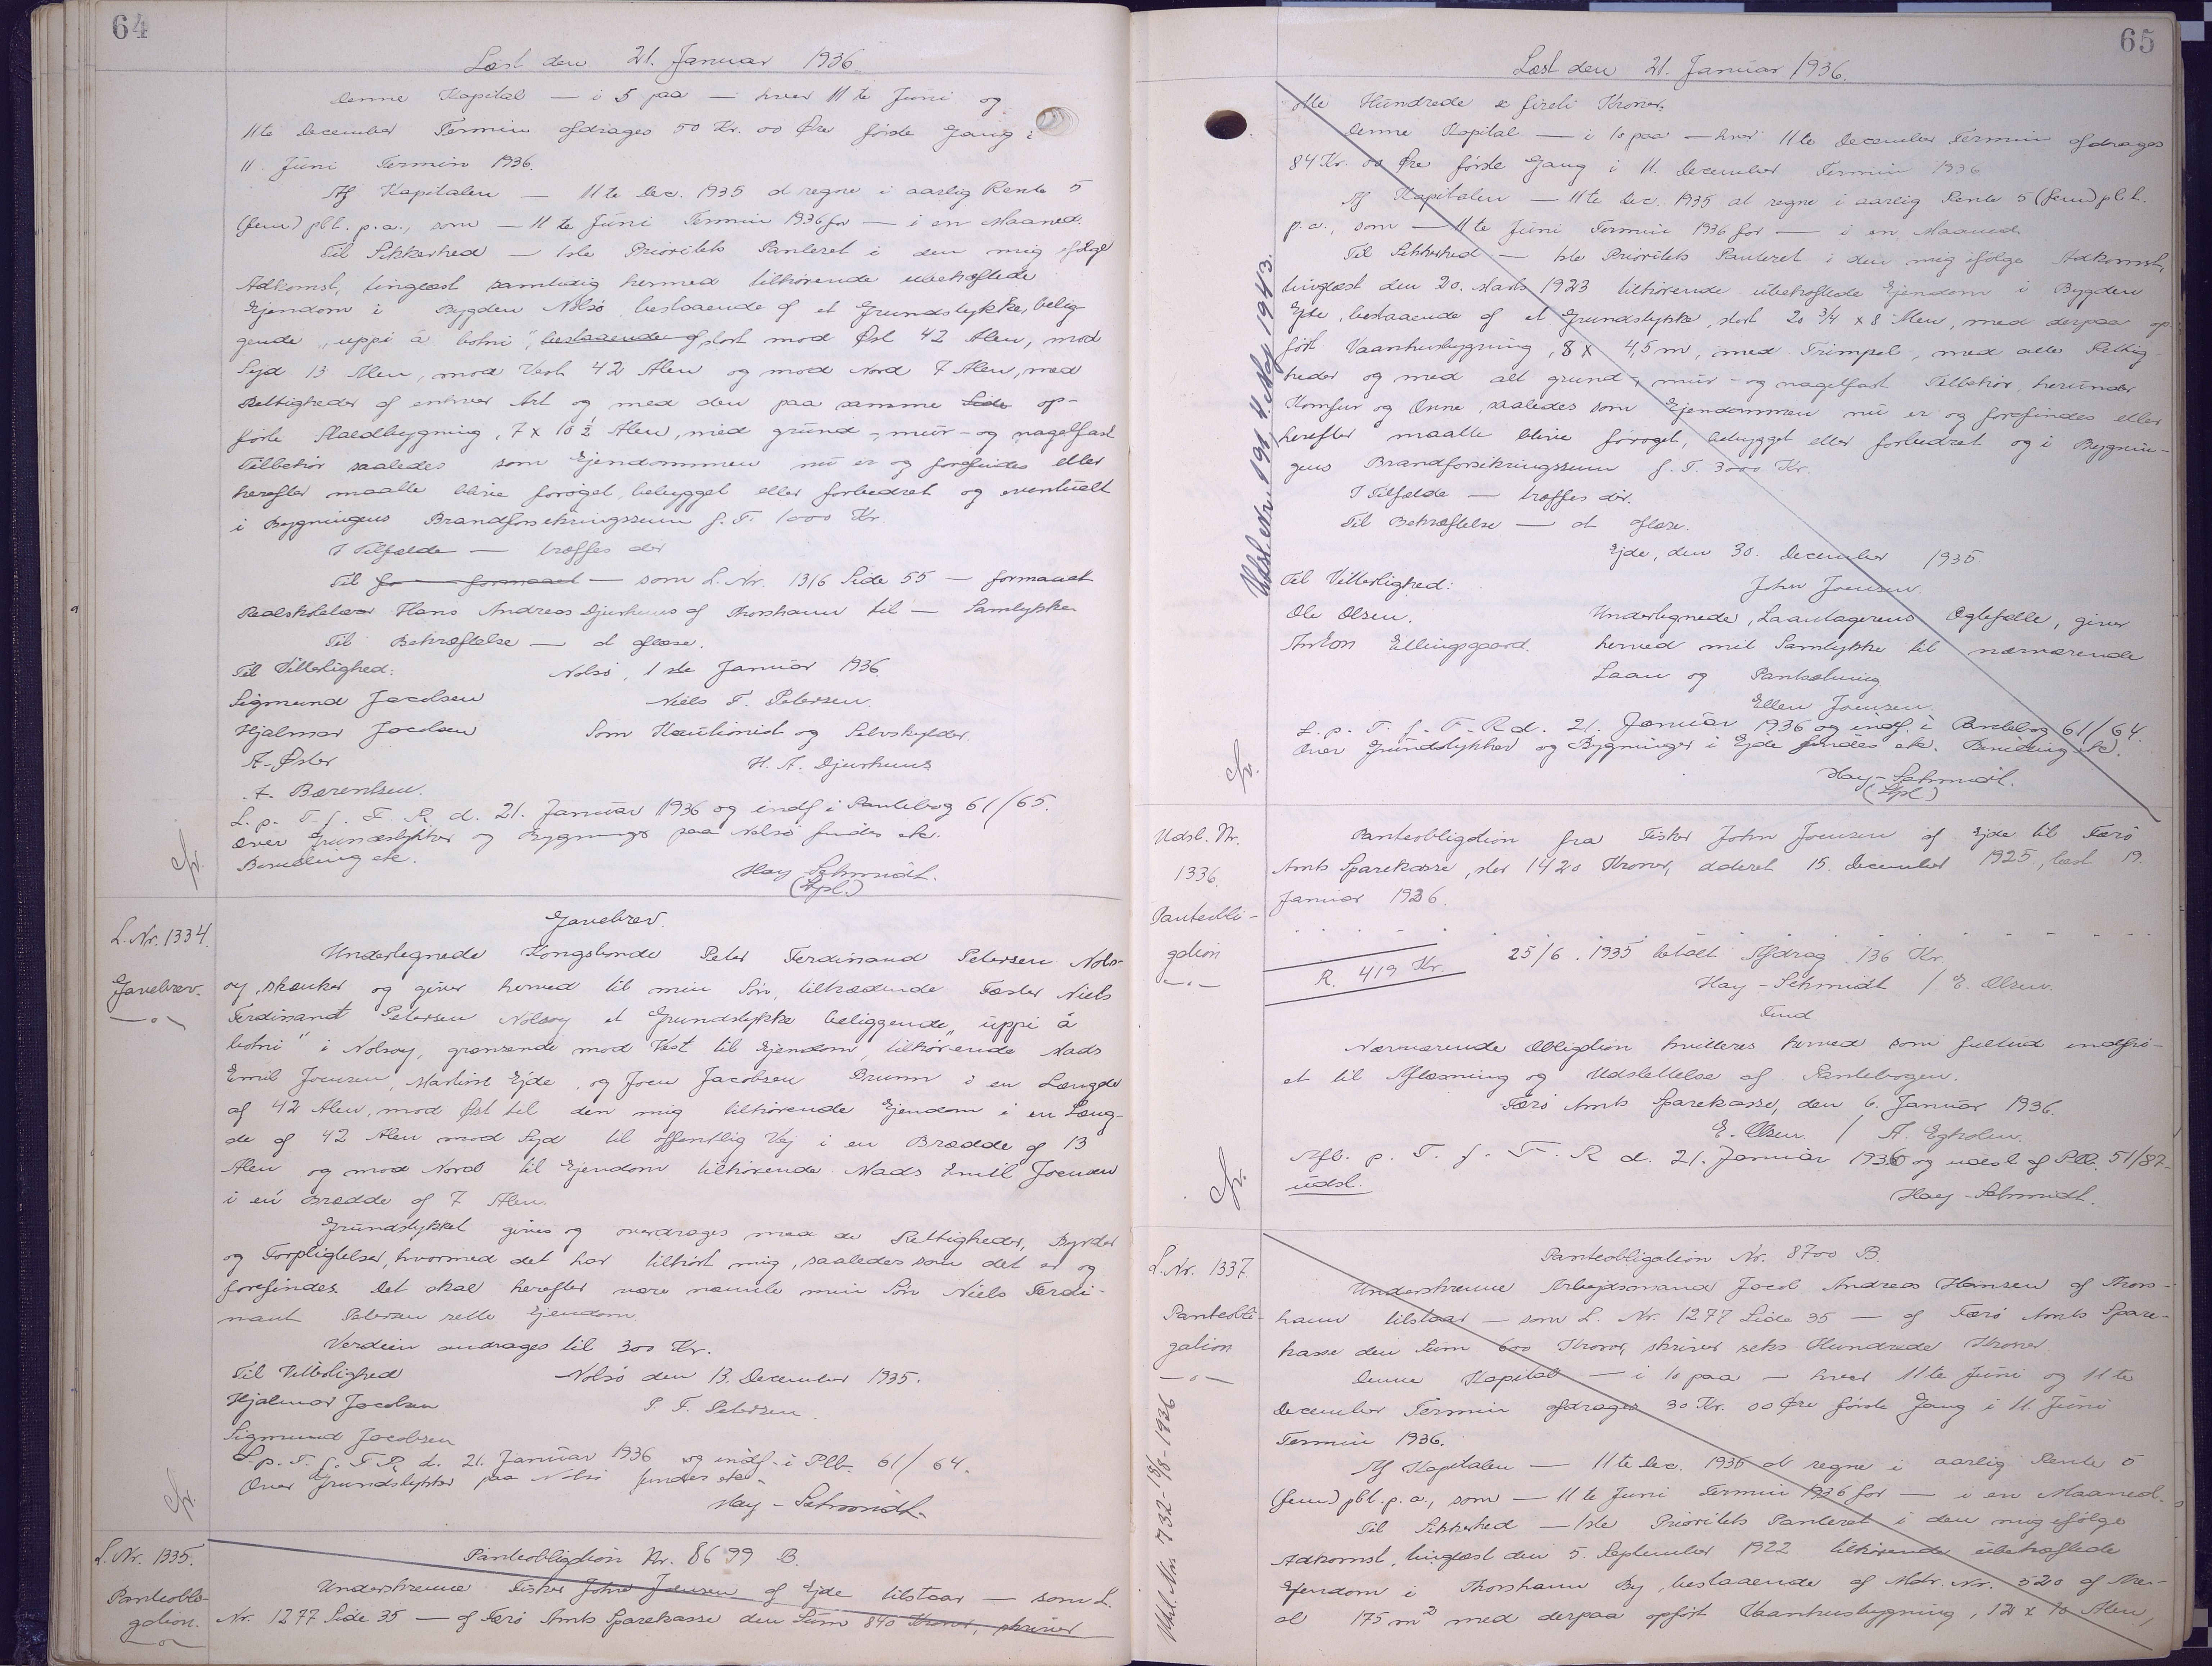 64
Læst den 21. Januar 1936.
Denne Kapital — i 5 paa — hver 11te Juni og
11te December Termin afdrages 50 Kr. 00 Øre første Gang i
11. Juni Termin 1936.
Af Kapitalen — 11te Dec. 1935 at regne i aarlig Rente 5
(fem) pCt. p.a., som — 11te Juni Termin 1936 for — i en Maaned.
Til Sikkerhed — 1ste Prioritets Panteret i den mig ifølge
Adkomst, tinglæst samtidig hermed tilhørende ubehæftede
Ejendom i Bygden Nolsø bestaaende af et Grundstykke, belig-
gende „uppi á botni", bestaaende af, stort mod Øst 42 Alen, mod
Syd 13 Alen, mod Vest 42 Alen og mod Nord 7 Alen, med
Rettigheder af enhver Art og med den paa samme Side op-
førte Staldbygning, 7 x 10½ Alen, med grund-, mur- og nagelfast
Tilbehør saaledes som Ejendommen nu er og forefindes eller
herefter maatte blive forøget, bebygget eller forbedret og eventuelt
i Bygningens Brandforsikringssum f. T. 1000 Kr.
I Tilfælde — træffes der
Til — formaaet — som L. Nr. 1316 Side 55 — formaaet
Realskolelærer Hans Andreas Djurhuus af Thorshavn til — Samtykke
Til Bekræftelse — at aflæse.
Til Vitterlighed: Nolsø, 1ste Januar 1936.
Sigmund Jacobsen Niels F. Petersen.
Hjalmar Jacobsen Som Kautionist og Selvskylder.
A. Øster H. A. Djurhuus
A. Bærentsen.
L. p. T. f. F. R. d. 21. Januar 1936 og indf. i Pantebog 61/65.
Over Grundstykker og Bygninger paa Nolsø findes etc.
Bemelding etc.
Hay-Schmidt.
(Stpl.)
L. Nr. 1334.
Gavebrev.
Gavebrev.
Undertegnede Kongsbonde Peter Ferdinand Petersen Nols-
oy, skænker og giver herved til min Søn, tiltrædende Fæster Niels
Ferdinandt Petersen Nolsoy et Grundstykke beliggende „uppi á
botni" i Nolsoy, grænsende mod Vest til Ejendom, tilhørende Mads
Emil Joensen, Martine Ejde, og Joen Jacobsen Brunn i en Længde
af 42 Alen, mod Øst til den mig tilhørende Ejendom i en Læng-
de af 42 Alen mod Syd til offentlig Vej i en Bredde af 13
Alen og mod Nord til Ejendom tilhørende Mads Emil Joensen
i en Bredde af 7 Alen.
Grundstykket gives og overdrages med de Rettigheder, Byrder
og Forpligtelser, hvormed det har tilhørt mig, saaledes som det er og
forefindes. Det skal herefter være nævnte min Søn Niels Ferdi-
nant Petersen rette Ejendom.
Værdien andrages til 300 Kr.
Til Vitterlighed Nolsø den 13. December 1935.
Hjalmar Jacobsen P. F. Petersen.
Sigmund Jacobsen
L. p. T. f. F. R. d. 21. Januar 1936 og indf. i Ptb. 61/64.
Over Grundstykker paa Nolsø findes etc.
Hay-Schmidt.
L. Nr. 1335.
Panteobli-
gation.
Panteobligation Nr. 8699 B.
Underskrevne Fisker John Joensen af Ejde tilstaar — som L.
Nr. 1277 Side 35 — af Færø Amts Sparekasse den Sum 840 Kroner, skriver
65
Læst den 21. Januar 1936.
otte Hundrede & fireti Kroner.
Denne Kapital — i 10 paa — hver 11te December Termin afdrages
84 Kr. 00 Øre første Gang i 11. December Termin 1936
Af Kapitalen — 11te Dec. 1935 at regne i aarlig Rente 5 (fem) pCt.
p.a., som — 11te Juni Termin 1936 for — i en Maaned
Til Sikkerhed — 1ste Prioritets Panteret i den mig ifølge Adkomst,
tinglæst den 20. Marts 1923 tilhørende ubehæftede Ejendom i Bygden
Ejde, bestaaende af et Grundstykke, stort 20 3/4 x 8 Alen, med derpaa op-
ført Vaanhusbygning, 8 x 4,5 m, med Trimpel, med alle Rettig-
heder og med alt grund-, mur- og nagelfast Tilbehør, herunder
Komfur og Ovne, saaledes som Ejendommen nu er og forefindes eller
herefter maatte blive forøget, bebygget eller forbedret og i Bygnin-
gens Brandforsikringssum f. T. 3000 Kr.
I Tilfælde — træffes der.
Til Bekræftelse — at aflæse.
Ejde, den 30. December 1935
Til Vitterlighed: John Joensen.
Ole Olsen. Undertegnede, Laantagerens Ægtefælle, giver
Anton Ellingsgaard. herved mit Samtykke til nærværende
Laan og Pantsætning
Ellen Joensen.
L. p. T. f. F. R. d. 21. Januar 1936 og indf. i Pantebog 61/64.
Over Grundstykker og Bygninger i Ejde findes etc. Bemelding etc.
Hay-Schmidt.
(Stpl.)
Udsl. Nr.
1336.
Panteobli-
gation
Panteobligation fra Fisker John Joensen af Ejde til Færø
Amts Sparekasse, stor 1420 Kroner, dateret 15. December 1925, læst 19.
Januar 1926.
25/6. 1935 betalt Afdrag 136 Kr.
R. 419 Kr.
Hay-Schmidt / E. Olsen.
Fmd.
Nærværende Obligation kvitteres herved som fuldtud indfri-
et til Aflæsning og Udslettelse af Pantebogen.
Færø Amts Sparekasse, den 6. Januar 1936.
E. Olsen / A. Egholm.
Afl. p. T. f. F. R. d. 21. Januar 1936 og udsl. af Ptb. 51/87.
udsl.
Hay-Schmidt.
L. Nr. 1337.
Panteobli-
gation
Udsl. Nr. 732 - 18/8 - 1936
Panteobligation Nr. 8700 B.
Underskrevne Arbejdsmand Jacob Andreas Hansen af Thors-
havn tilstaar — som L. Nr. 1277 Side 35 — af Færø Amts Spare-
kasse den Sum 600 Kroner, skriver seks Hundrede Kroner.
Denne Kapital — i 10 paa — hver 11te Juni og 11te
December Termin afdrages 30 Kr. 00 Øre første Gang i 11. Juni
Termin 1936.
Af Kapitalen — 11te Dec. 1935 at regne i aarlig Rente 5
(fem) pCt. p.a., som — 11te Juni Termin 1936 for — i en Maaned.
Til Sikkerhed — 1ste Prioritets Panteret i den mig ifølge
Adkomst, tinglæst den 5. September 1922 tilhørende ubehæftede
Ejendom i Thorshavn By, bestaaende af Matr. Nr. 520 af Are-
al 175 m² med derpaa opført Vaanhusbygning, 12 x 10 Alen,